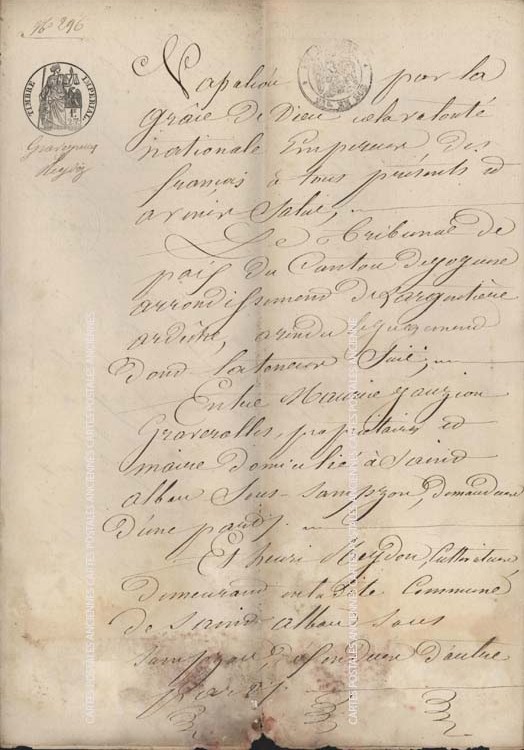 No 296
TIMBRE IMPERIAL
Napoléon par la
Grâce de Dieu et la volonté
nationale Empereur des
français à tous présents et
avenir Salut,
Le Tribunal de
paix du Canton de Joyeuse
arrondissement de Largentière
ardèche, a rendu le jugement
dont la teneur Suit,
Entre Maurice
Graverolles, propriétaire et
maire domicilié à Saint
alban Sous Sampzon, demandeur
d'une part,
Et henri Meydon, Cultivateur
demeurant en la dite Commune
de Saint alban sous
sampzon, défendeur d'autre
part
CARTES POSTALES ANCIENNES CARTES POSTALES ANCIENNES CARTES POSTALES ANCIENNES
CARTES POSTALES ANCIENNES CARTES POSTALES ANCIENNES CARTES POSTALES ANCIENNES